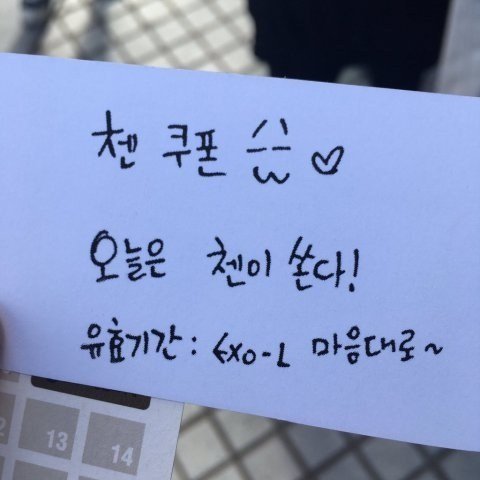 첸 쿠폰 ♡
오늘은 첸이 쏜다!
유효기간: EXO-L 마음대로~
13
14